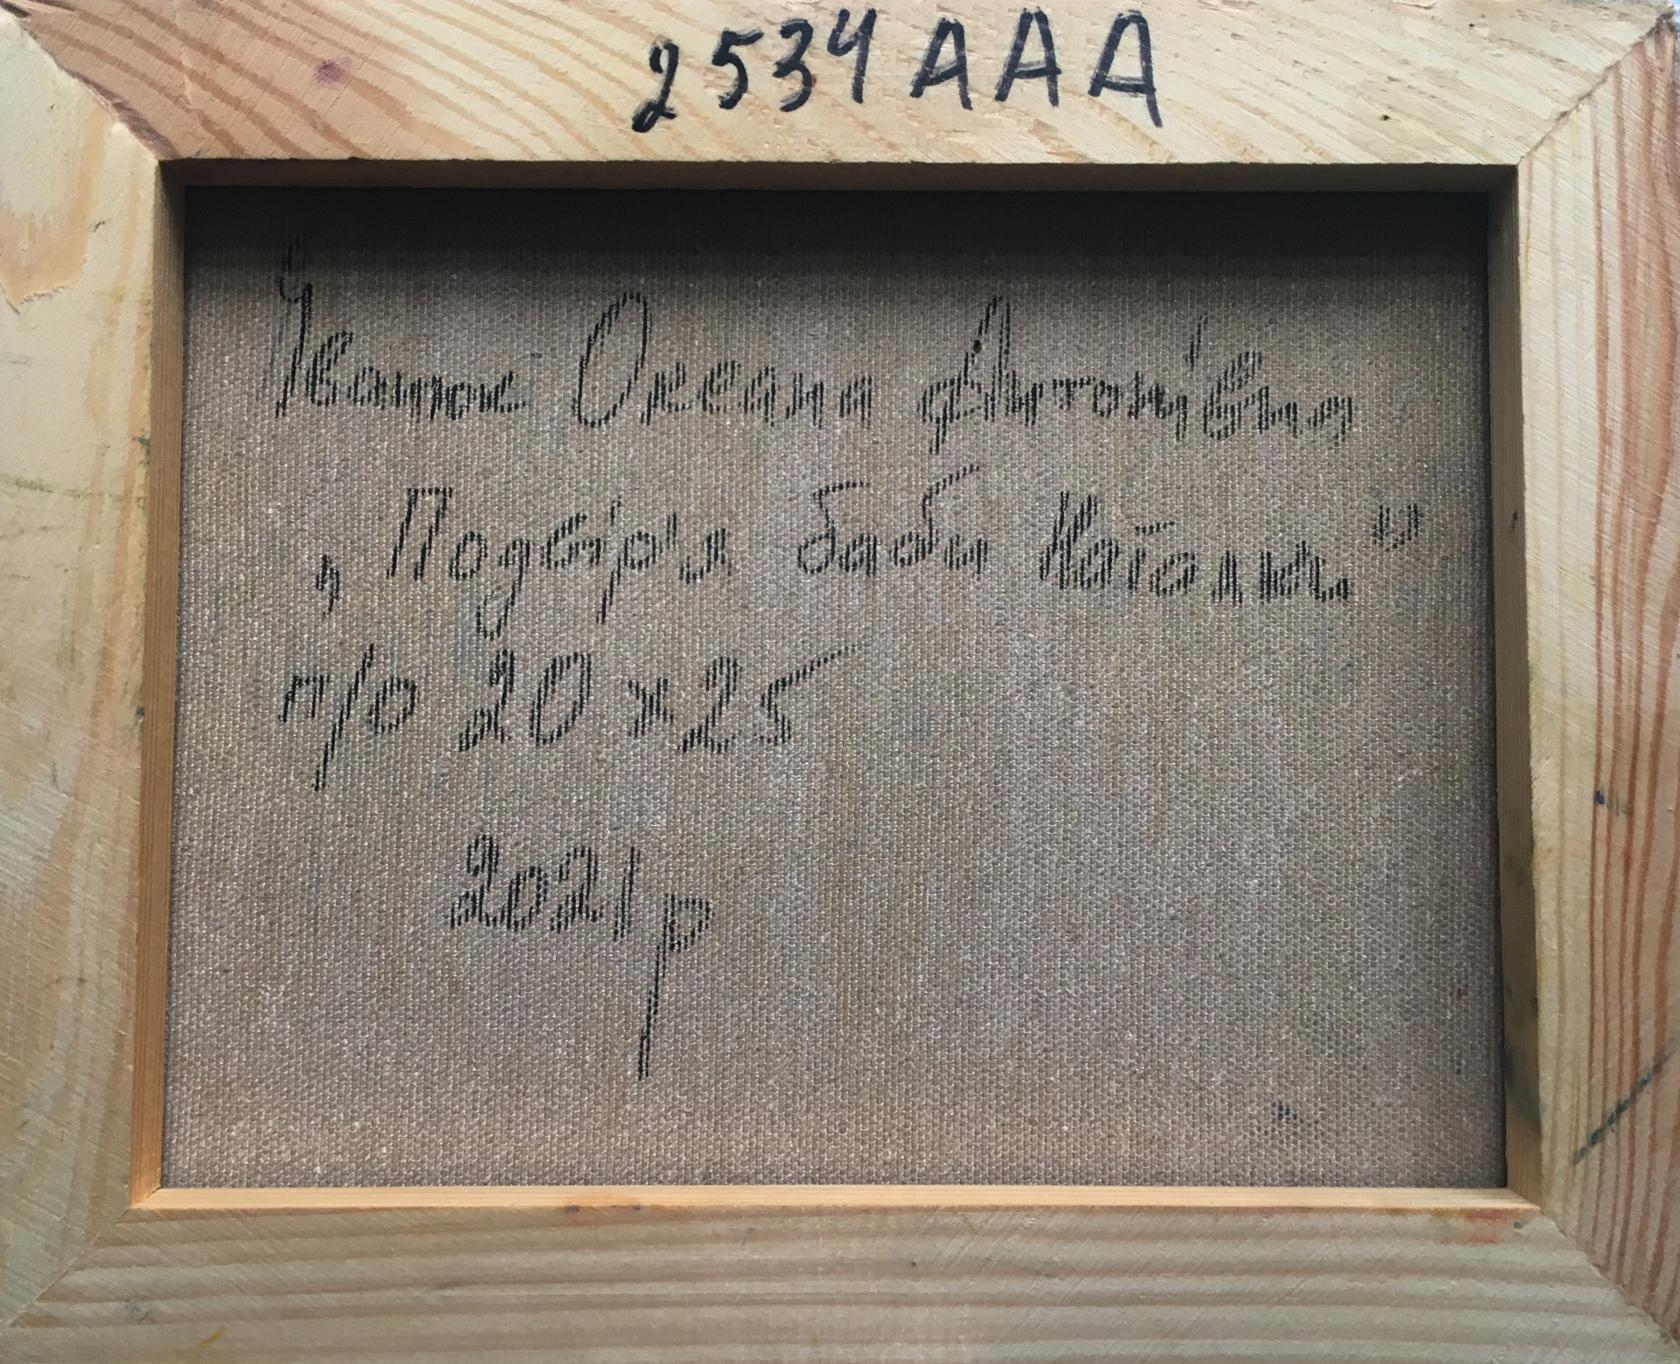 2534 AAA
Іванюк Океана Антонівна
„Подвіря баби Наталки"
п/о 20 x 25
2021р